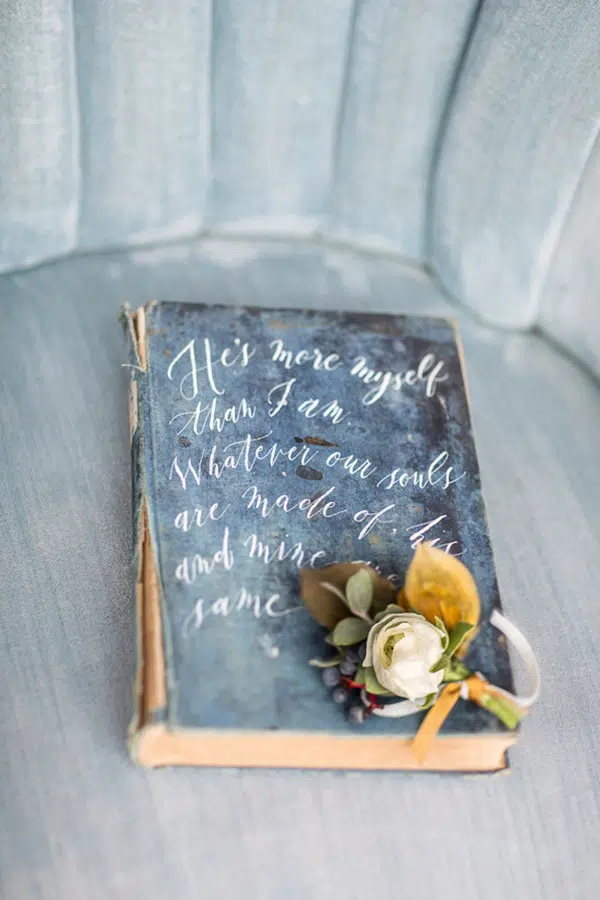 He's more myself
than I am.
Whatever our souls
are made of, his
and mine
same